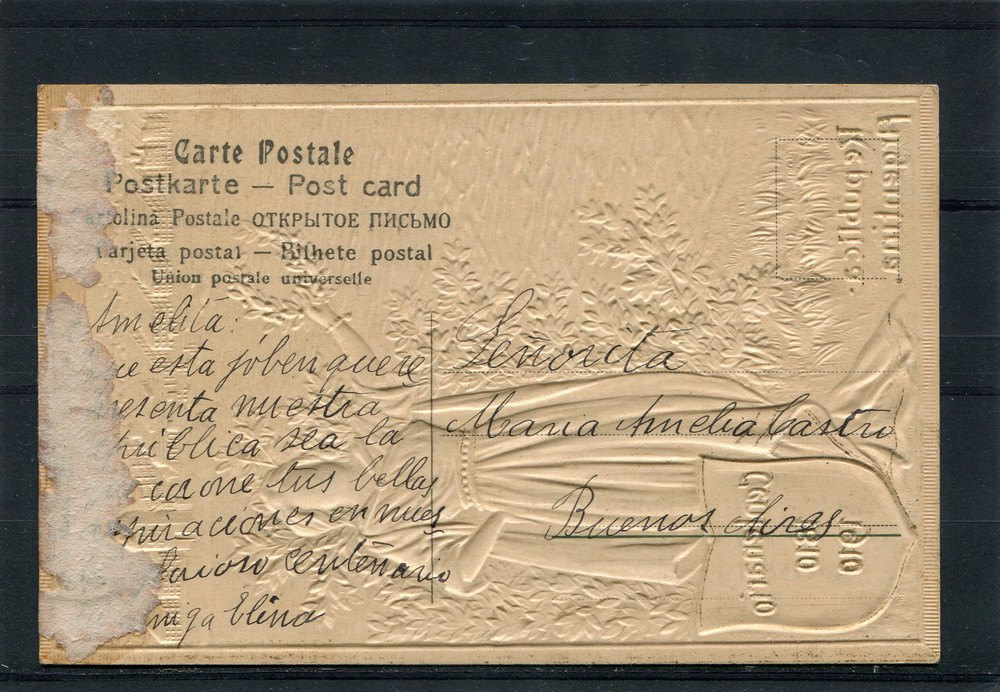 Carte Postale
Postkarte — Post card
Cartolina Postale ОТКРЫТОЕ ПИСЬМО
Tarjeta postal — Bilhete postal
Union postale universelle
Amelita:
ue esta jóben quere
resenta nuestra
ública sea la
corone tus bellas
piraciónes en nues
centenario
miga Elina
Señorita
Maria Amelia Castro
Buenos Aires
Republica
Argentina
1810
1910
Centenario